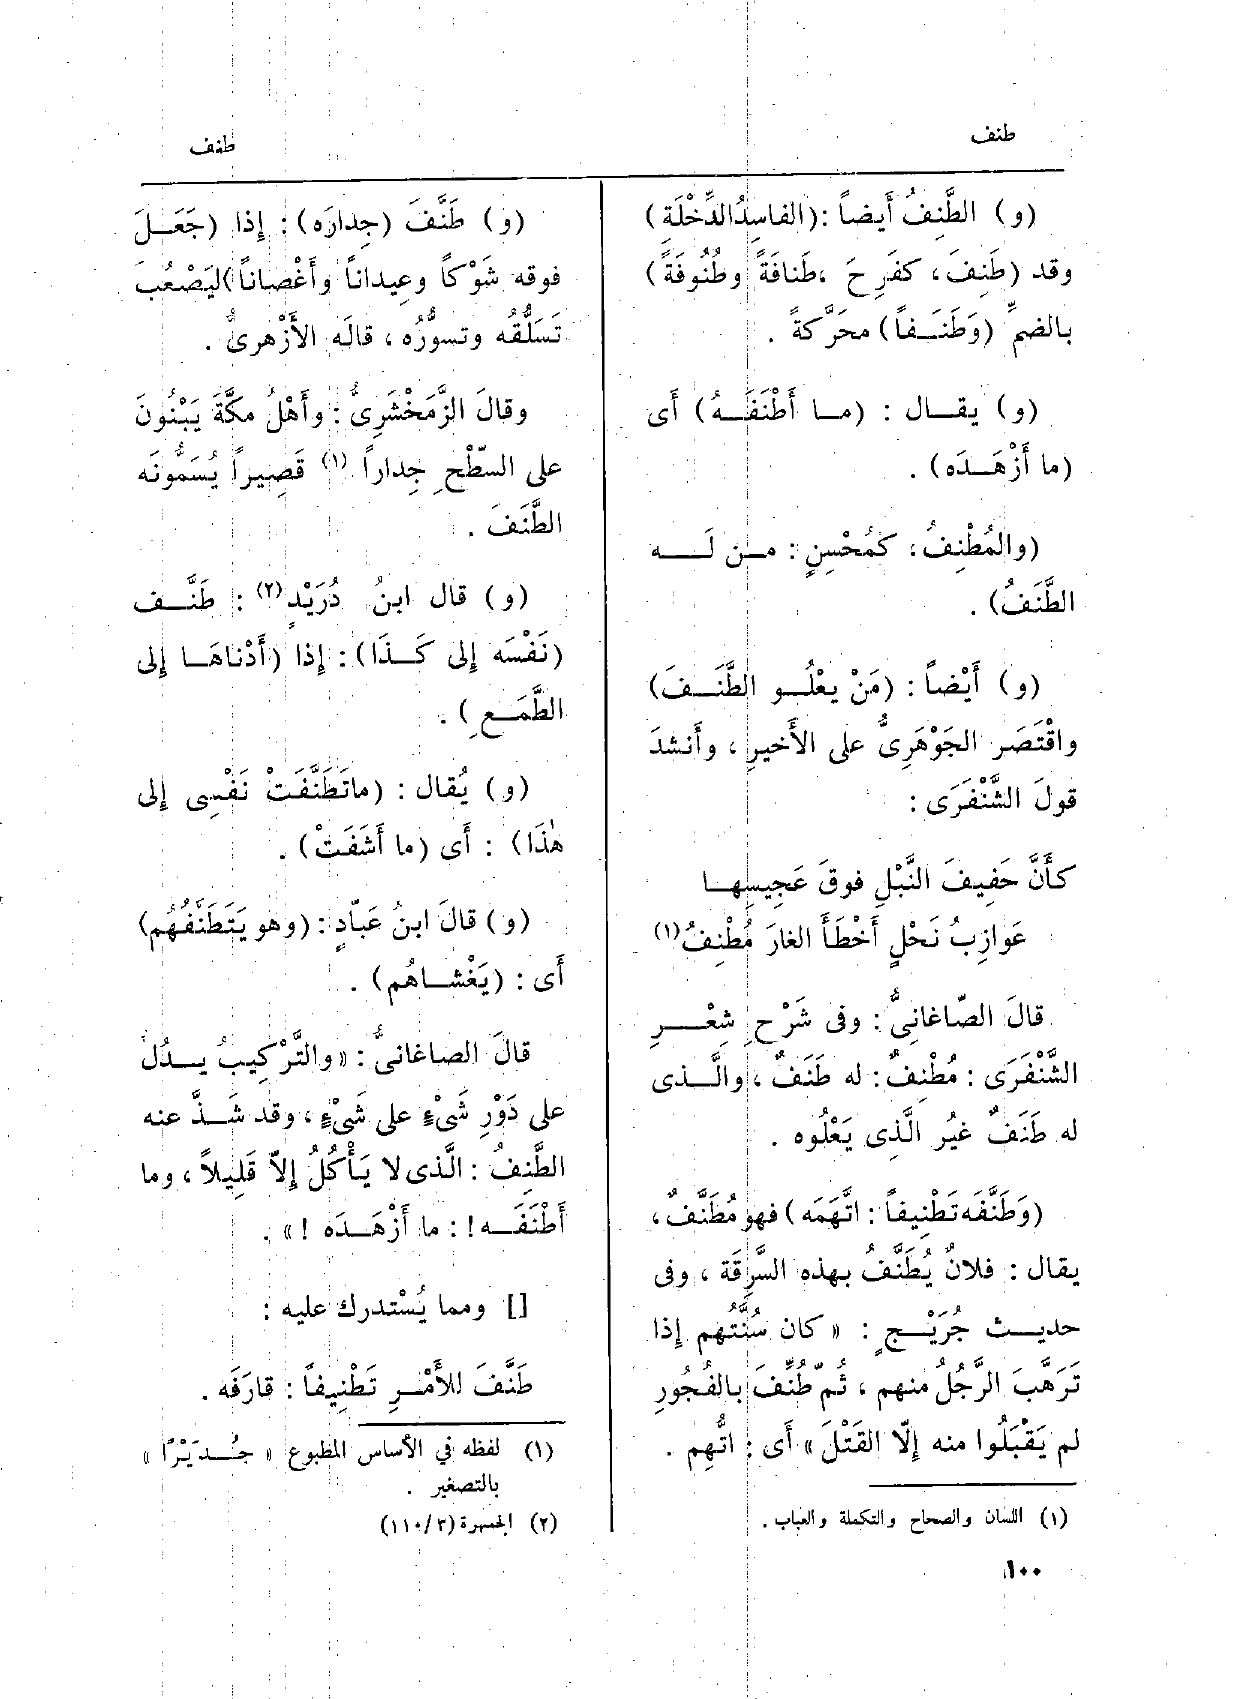 طنف
طنف
(و) الطَّنِفُ أَيضاً : (الفاسِدُ الدِّخْلَةِ)
وقد (طَنِفَ، كفَرِحَ، طَنافَةً وطُنُوفَةً)
بالضمِّ (وَطَنَفاً) محَرَّكةً .
(و) يقال : (ما أَطْنَفَهُ) أَى
(ما أَزْهَدَه) .
(والمُطْنِفُ، كمُحْسِنٍ : من لَه
الطَّنَفُ) .
(و) أَيْضاً : (مَنْ يعْلُو الطَّنَفَ)
واقْتَصَر الجَوْهَرِىُّ على الأَخيرِ ، وأَنشدَ
قولَ الشَّنْفَرَى :
كأَنَّ حَفِيفَ النَّبْلِ فوقَ عَجِيسِها
عَوازِبُ نَحْلٍ أَخْطَأَ الغارَ مُطْنِفُ(١)
قالَ الصّاغانِىُّ : وفى شَرْحِ شِعْرِ
الشَّنْفَرَى : مُطْنِفٌ : له طَنَفٌ ، والَّذى
له طَنَفٌ غيُر الَّذِى يَعْلُوه .
(وَطَنَّفَه تَطْنِيفاً : اتَّهَمَه) فهو مُطَنَّفٌ ،
يقال : فلانٌ يُطَنَّفُ بهذه السَّرِقَة ، وفى
حديث جُرَيْجٍ : « كان سُنَّتُهم إذا
تَرَهَّبَ الرَّجُلُ منهم ، ثُمّ طُنِّفَ بالفُجُورِ
لم يَقْبَلُوا منه إلّا القَتْلَ » أَى : اتُّهِم .
(١) اللسان والصحاح والتكملة والعباب .
(و) طَنَّفَ (جِدارَه) : إذا (جَعَلَ
فوقه شَوْكاً وعِيداناً وأَغْصاناً) ليَصْعُبَ
تَسَلُّقُه وتسوُّرُه ، قالَه الأَزْهرىُّ .
وقالَ الزَّمَخْشَرِىُّ : وأَهْلُ مكَّةَ يَبْنُونَ
على السّطْحِ جِداراً (١) قَصِيراً يُسَمُّونَه
الطَّنَفَ .
(و) قال ابنُ دُرَيْدٍ(٢) : طَنَّف
(نَفْسَه إلى كَذَا) : إذا (أَدْناهَا إلى
الطَّمَعِ) .
(و) يُقال : (ماتَطَنَّفَتْ نَفْسِى إلى
هٰذَا) : أَى (ما أَشَفَتْ) .
(و) قالَ ابنُ عَبّادٍ : (وهو يَتَطَنَّفُهُم)
أَى : (يَغْشاهُم) .
قالَ الصاغانىُّ : « والتَّرْكِيبُ يدُلُّ
على دَوْرِ شَىْءٍ على شَىْءٍ ، وقد شَذَّ عنه
الطَّنِفُ : الَّذى لا يَأْكُلُ إلاّ قَلِيلاً ، وما
أَطْنَفَه ! : ما أَزْهَدَه ! » .
[] ومما يُسْتدرك عليه :
طَنَّفَ للأَمْرِ تَطْنِيفاً : قارَفَه .
(١) لفظه في الأساس المطبوع « جُدَيْرًا »
بالتصغير .
(٢) الجمهرة (٣/ ١١٠)
١٠٠